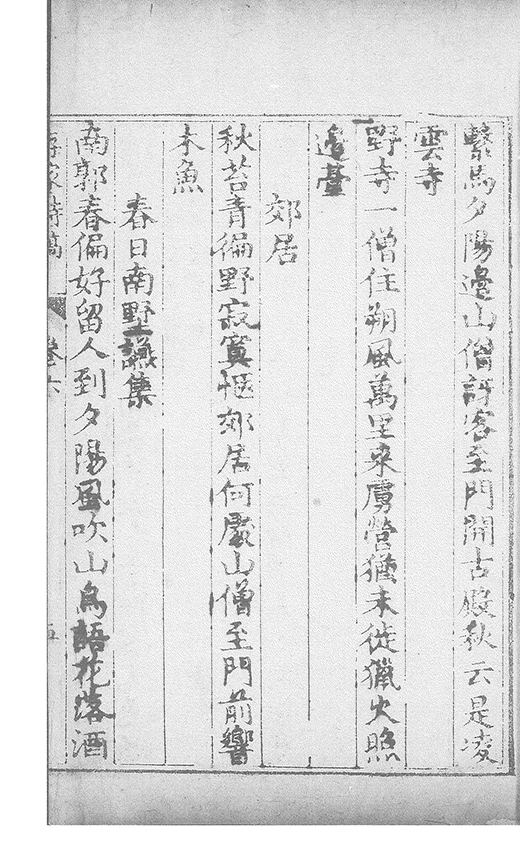 繫馬夕陽邊山僧訝客至門開古殿秋云是凌
雲寺
野寺一僧住朔風萬里來虜營猶未徙獵火照
邊臺
郊居
秋苔青徧野寂寞愜郊居何處山僧至門前響
木魚
春日南墅讌集
南郭春偏好留人到夕陽風吹山鳥語花落酒
卷六
五